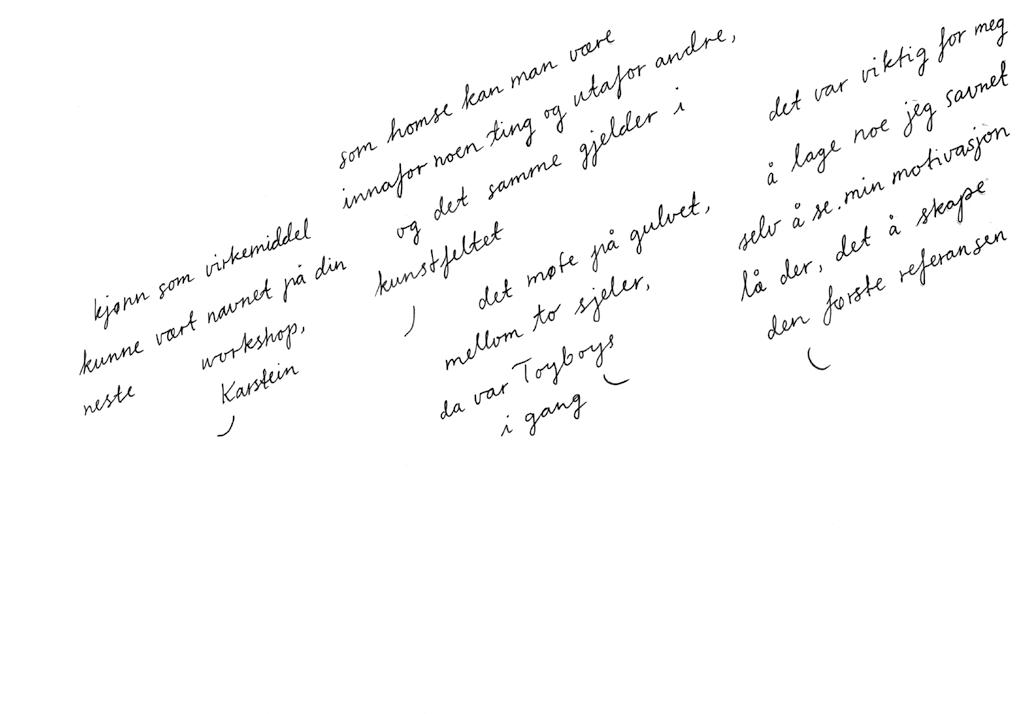 kjønn som virkemiddel
kunne vært navnet på din
neste workshop,
Karstein
som homse kan man være
innafor noen ting og utafor andre,
og det samme gjelder i
kunstfeltet
det møte på gulvet,
mellom to sjeler,
da var Toyboys
i gang
det var viktig for meg
å lage noe jeg savnet
selv å se. min motivasjon
lå der, det å skape
den første referansen